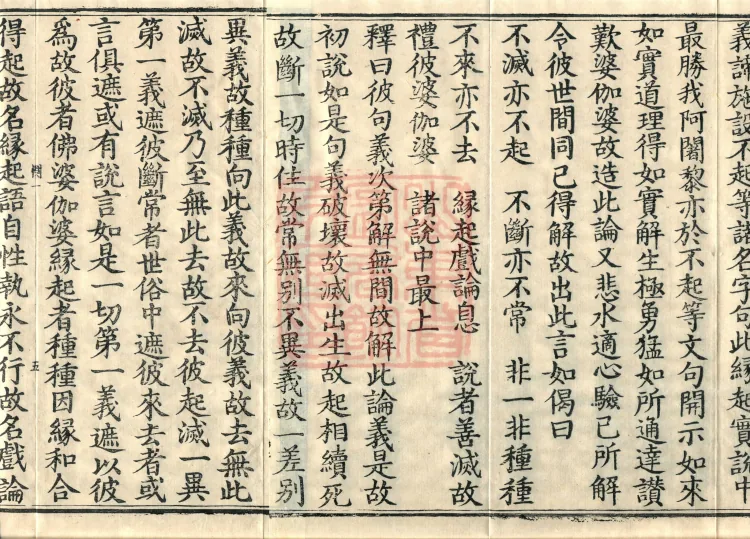 義諦施設不起等諸名字句此緣起實說中
最勝我阿闍黎亦於不起等文句開示如來
如實道理得如實解生極勇猛如所通達讚
歎婆伽婆故造此論又悲水適心驗已所解
令彼世間同已得解故出此言如偈曰
不滅亦不起 不斷亦不常 非一非種種
不來亦不去 緣起戲論息 說者善滅故
禮彼婆伽婆 諸說中最上
釋曰彼句義次第解無間故解此論義是故
初說如是句義破壞故滅出生故起相續死
故斷一切時住故常無別不異義故一差別
異義故種種向此義故來向彼義故去無此
滅故不滅乃至無此去故不去彼起滅一異
第一義遮彼斷常者世俗中遮彼來去者或
言俱遮或有說言如是一切第一義遮以彼
為故彼者佛婆伽婆緣起者種種因緣和合
得起故名緣起語自性執永不行故名戲論